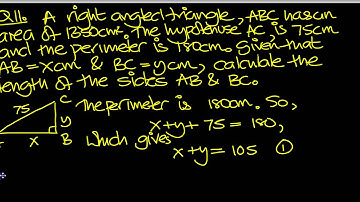 Q11. A right angled-triangle, ABC has an
area of 1350cm². The hypotenuse AC is 75cm
and the perimeter is 180cm. Given that
AB = xcm & BC = ycm, calculate the
length of the sides AB & BC.
75
C
y
B
x
The perimeter is 180cm. So,
x+y+75 = 180,
which gives
x+y = 105 ①